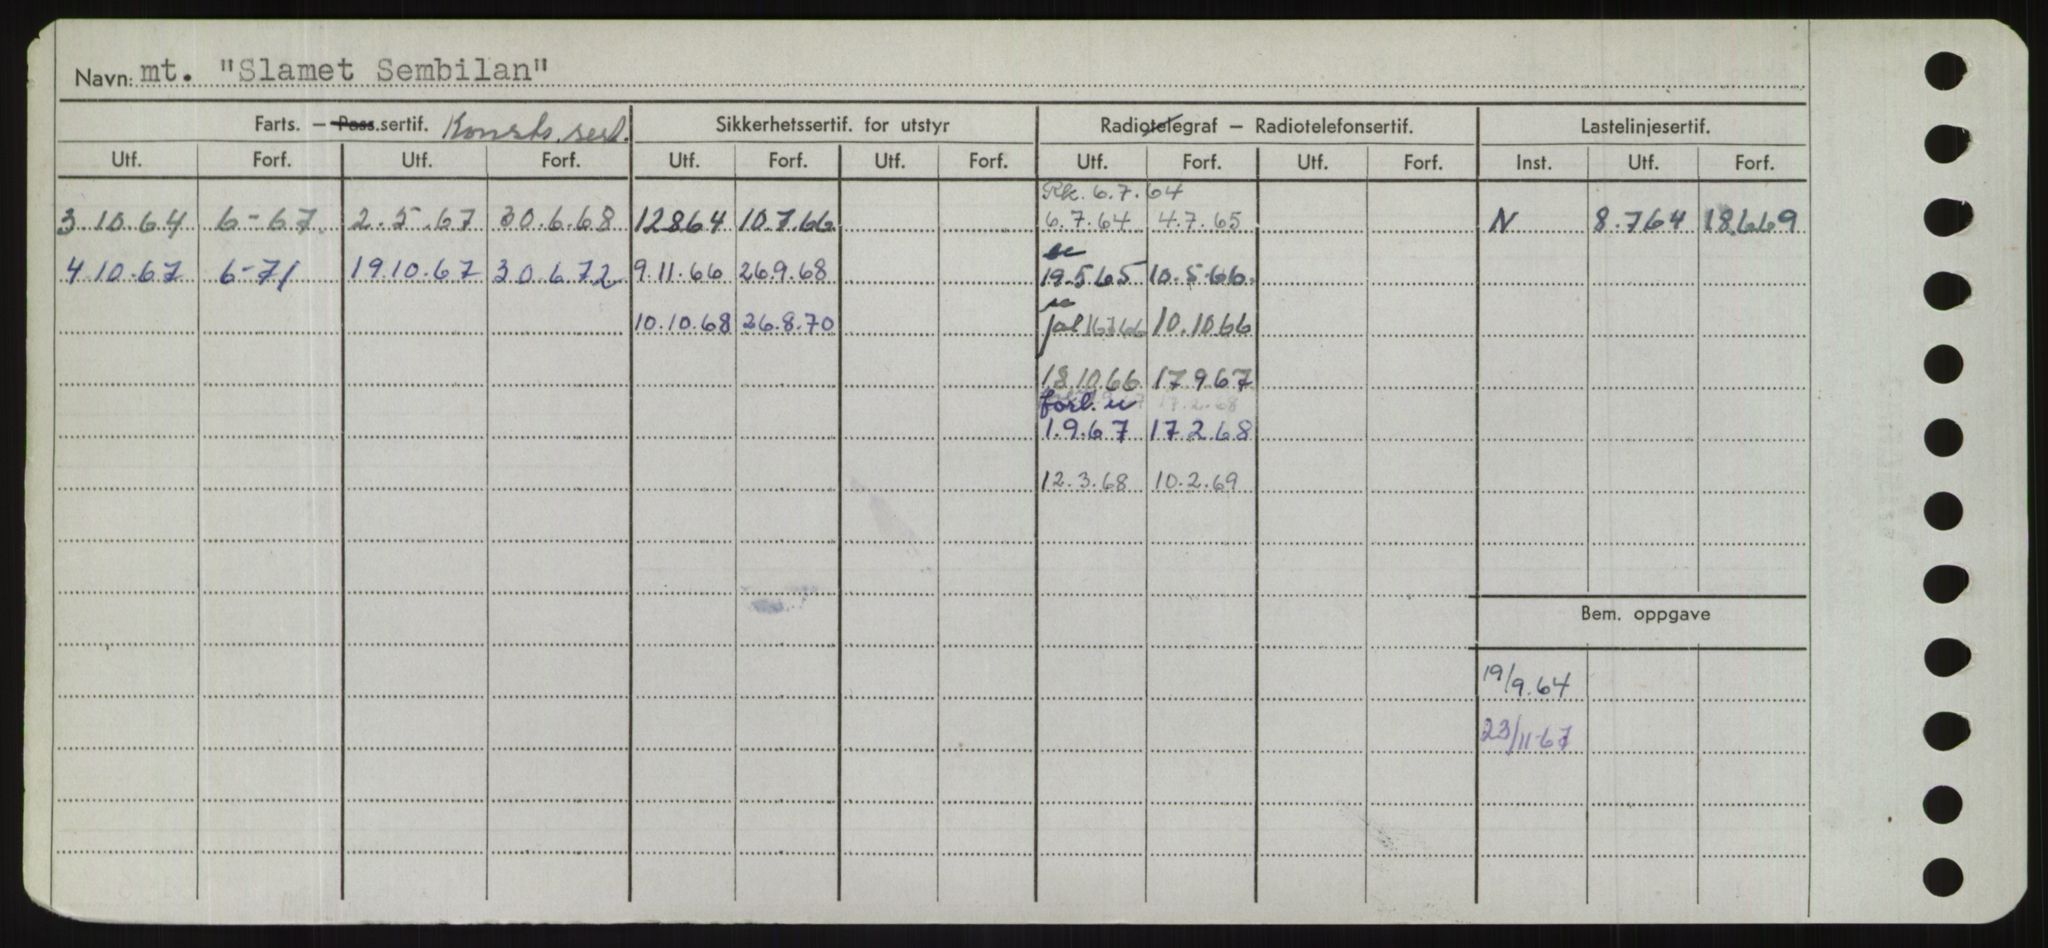 Navn: mt. "Slamet Sembilan"
Farts. – Pass.sertif. Konstr. sert. Sikkerhetssertif. for utstyr Radiotelegraf – Radiotelefonsertif. Lastelinjesertif.
Utf. Forf. Utf. Forf. Utf. Forf. Utf. Forf. Utf. Forf. Utf. Forf. Inst. Utf. Forf.
Rk. 6.7.64
3.10.64 6-67. 2.5.67 30.6.68 12864 10.7.66 6.7.64 4.7.65 N 8.764 18669
4.10.67 6-71 19.10.67 30.6.72 9.11.66 26.9.68 19.5.65 10.5.66.
10.10.68 26.8.70 10.10.66
18.10.66 17.9.67
forl. 17.2.68
1.9.67 17.2.68
12.3.68 10.2.69
Bem. oppgave
19/9.64
23/11-67